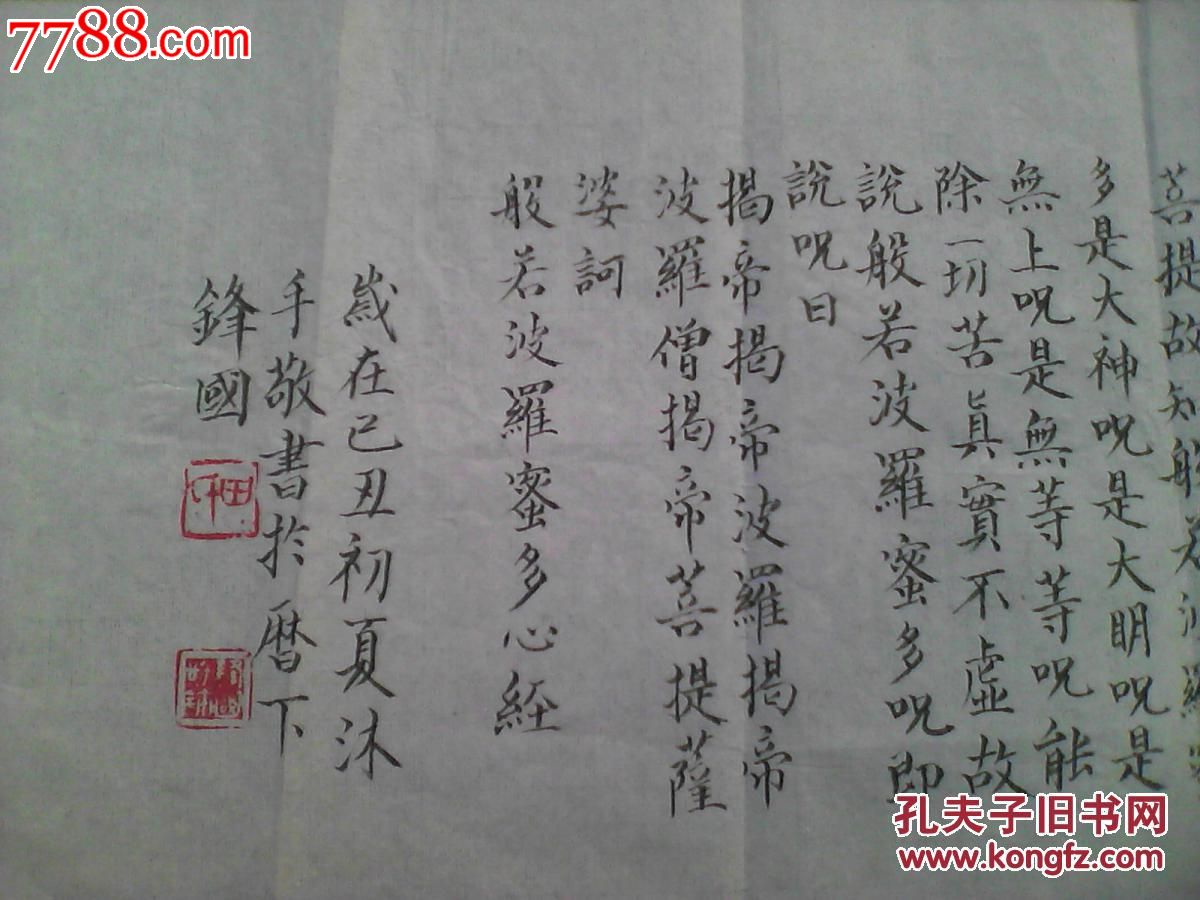 菩提故知般若波羅蜜
多是大神呪是大明呪是
無上呪是無等等呪能
除一切苦真實不虛故
說般若波羅蜜多呪即
說呪曰
揭帝揭帝波羅揭帝
波羅僧揭帝菩提薩
婆訶
般若波羅蜜多心経
歲在己丑初夏沐
手敬書於曆下
鋒國
7788.com
孔夫子旧书网
www.kongfz.com